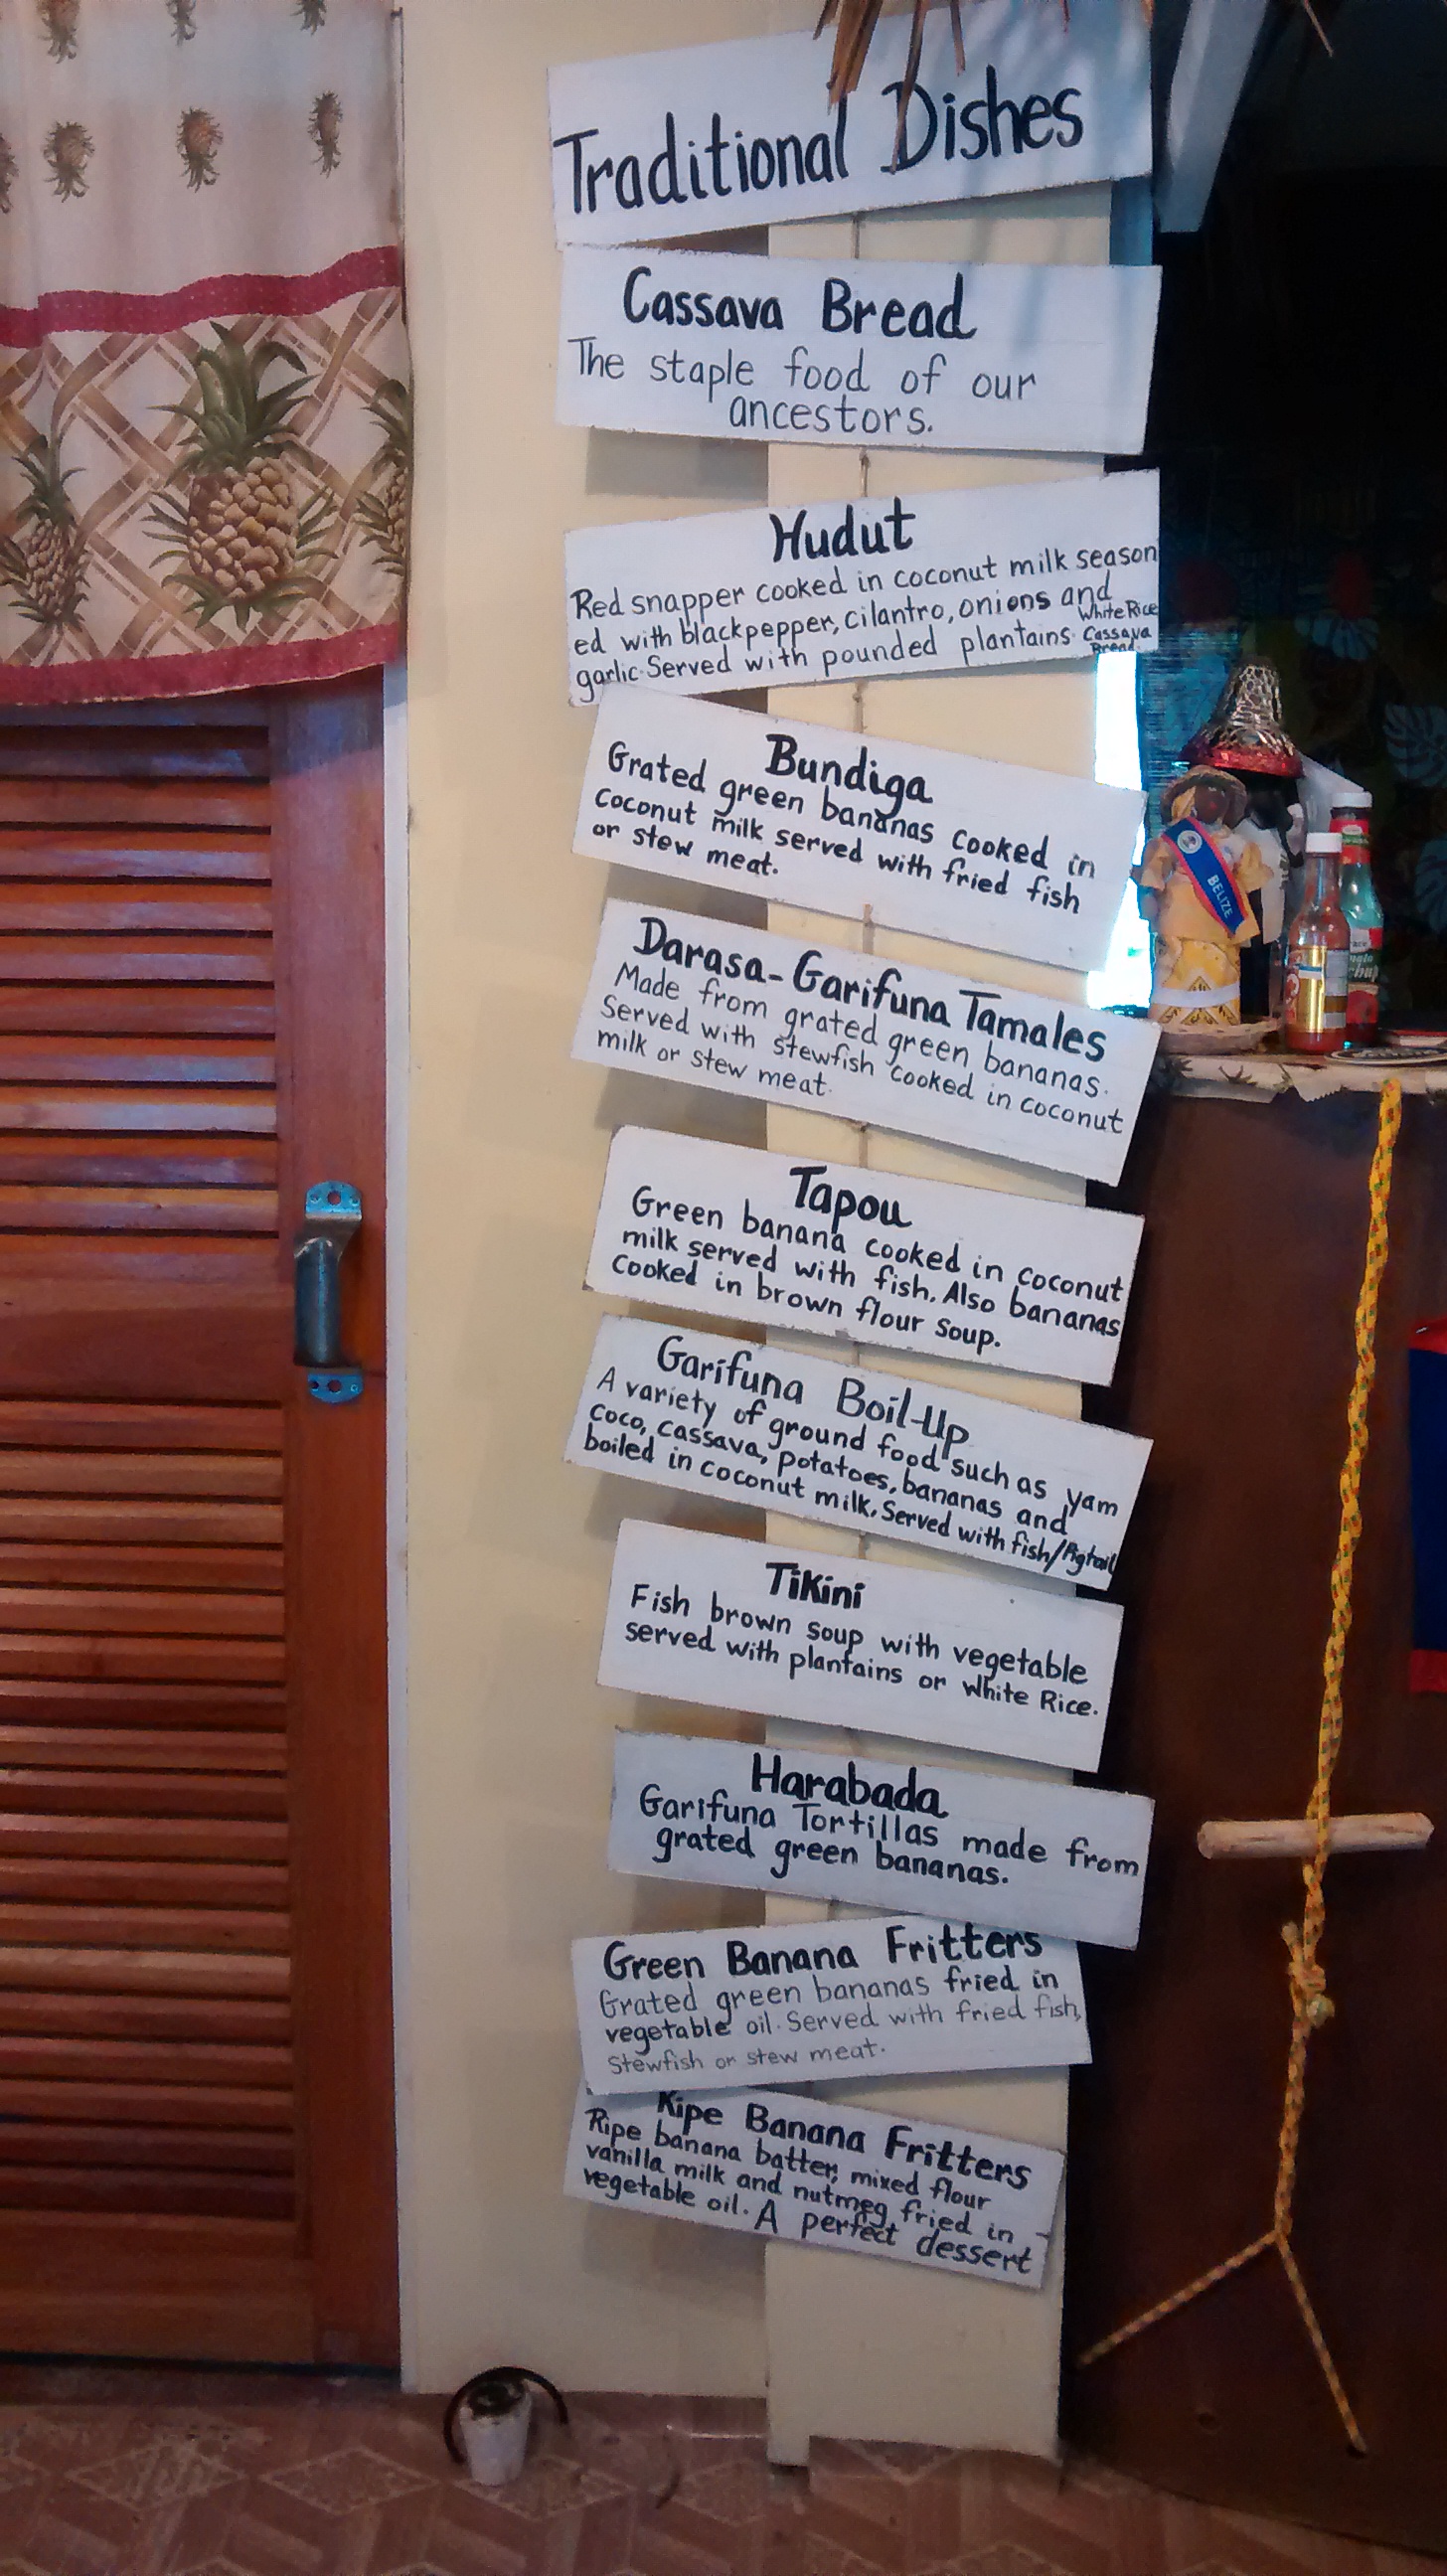 Traditional Dishes
Cassava Bread
The staple food of our
ancestors.
Hudut
Red snapper cooked in coconut milk season
ed with blackpepper, cilantro, onions and
garlic. Served with pounded plantains.
White Rice
Cassava
Bread.
Bundiga
Grated green bananas cooked in
coconut milk served with fried fish
or stew meat.
Darasa-Garifuna Tamales
Made from grated green bananas.
Served with stewfish cooked in coconut
milk or stew meat.
Tapou
Green banana cooked in coconut
milk served with fish. Also bananas
cooked in brown flour soup.
Garifuna Boil-Up
A variety of ground food such as yam
coco, cassava, potatoes, bananas and
boiled in coconut milk. Served with fish/Pigtail
Tikini
Fish brown soup with vegetable
served with plantains or White Rice.
Harabada
Garifuna Tortillas made from
grated green bananas.
Green Banana Fritters
Grated green bananas fried in
vegetable oil. Served with fried fish,
Stewfish or stew meat.
Ripe Banana Fritters
Ripe banana batter, mixed flour
vanilla milk and nutmeg fried in
vegetable oil. A perfect dessert
BELIZE